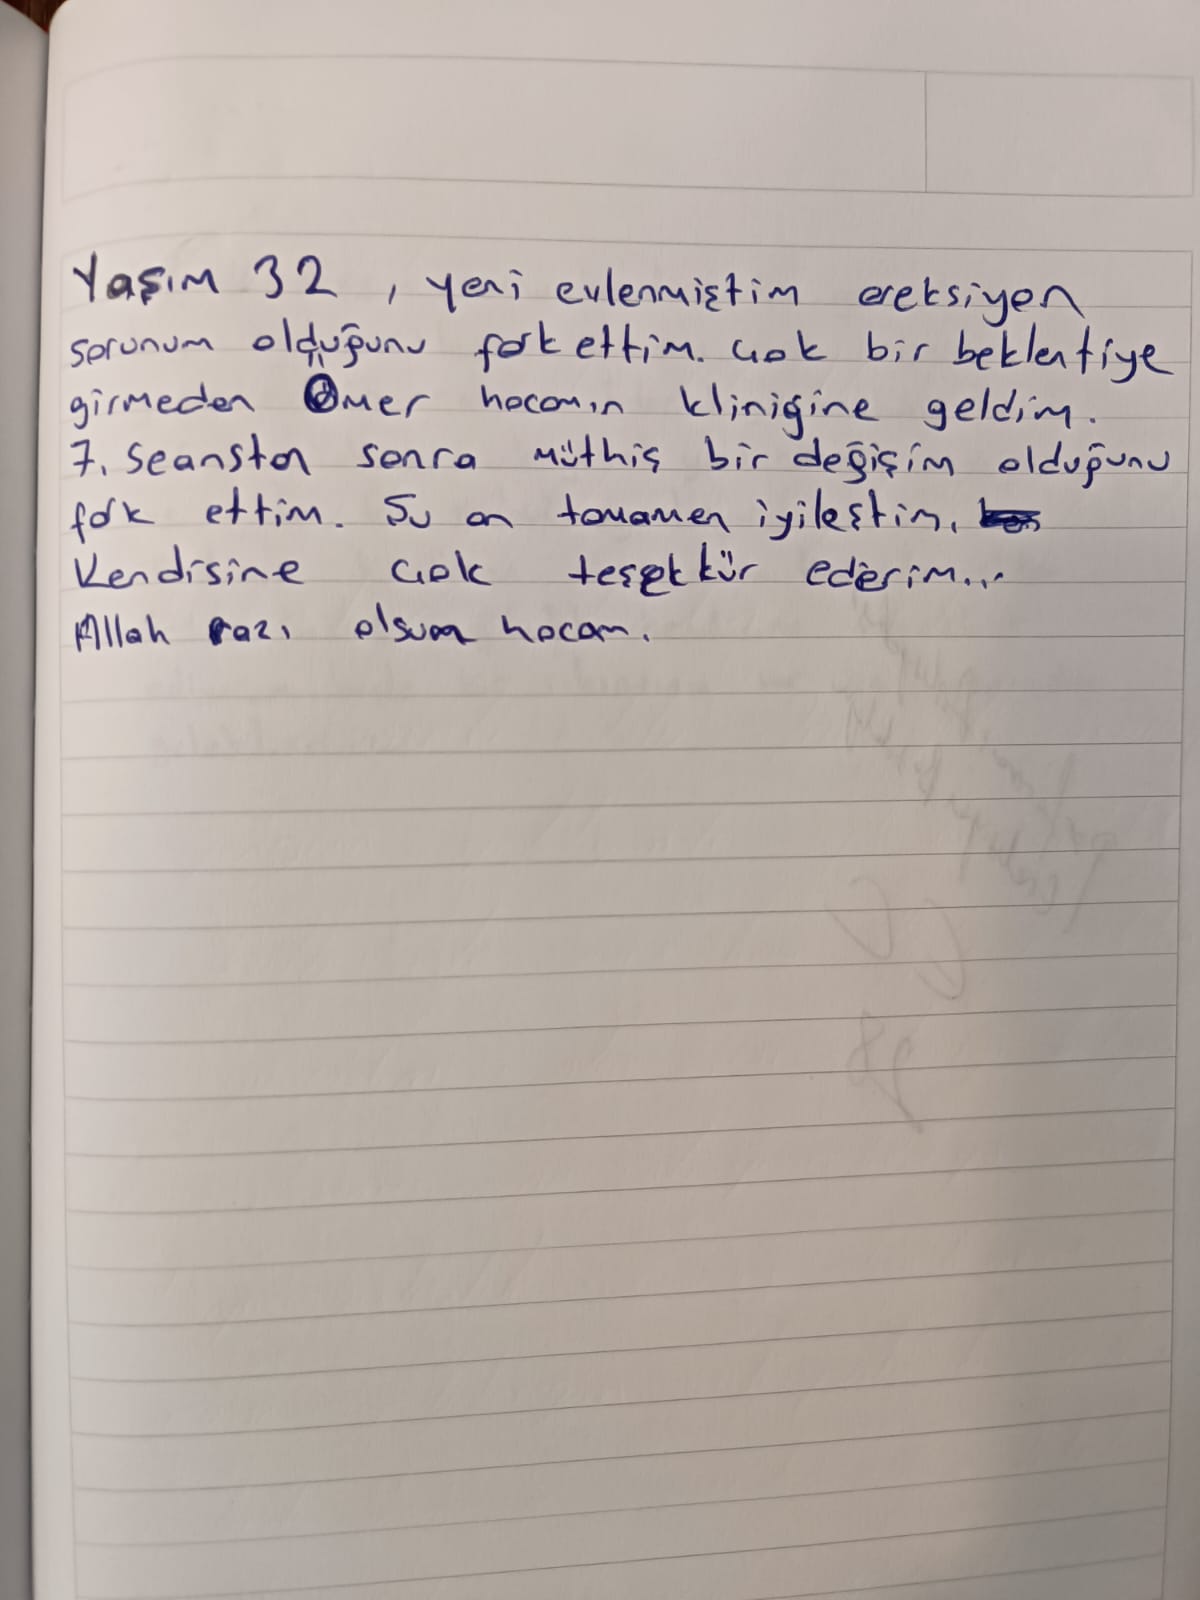 Yaşım 32, yeni evlenmiştim ereksiyon
sorunum olduğunu fark ettim. Çok bir beklentiye
girmeden Ömer hocamın kliniğine geldim.
7. seanstan sonra müthiş bir değişim olduğunu
fark ettim. Şu an tamamen iyileştim.
Kendisine çok teşekkür ederim...
Allah razı olsun hocam.